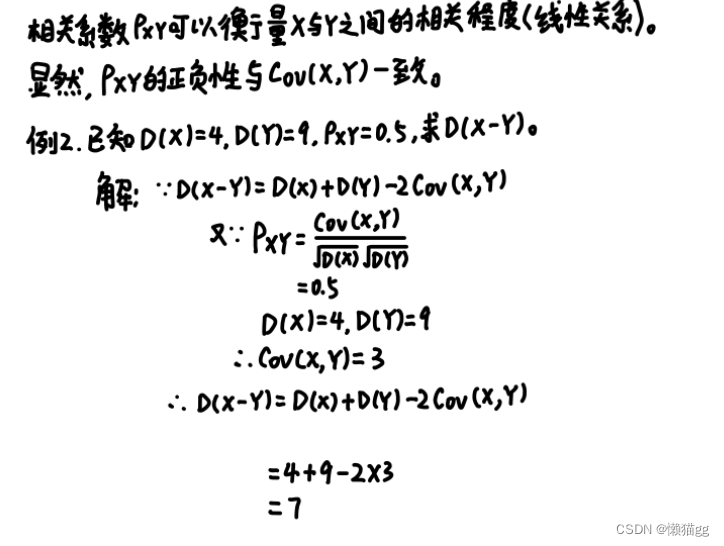 相关系数ρXY可以衡量X与Y之间的相关程度(线性关系)。
显然,ρXY的正负性与Cov(X,Y)一致。
例2.已知D(X)=4,D(Y)=9,ρXY=0.5,求D(X-Y)。
解:∵D(X-Y)=D(X)+D(Y)-2Cov(X,Y)
又∵ρXY=Cov(X,Y)/√D(X)√D(Y)
=0.5
D(X)=4,D(Y)=9
∴Cov(X,Y)=3
∴D(X-Y)=D(X)+D(Y)-2Cov(X,Y)
=4+9-2×3
=7
CSDN @懒猫gg